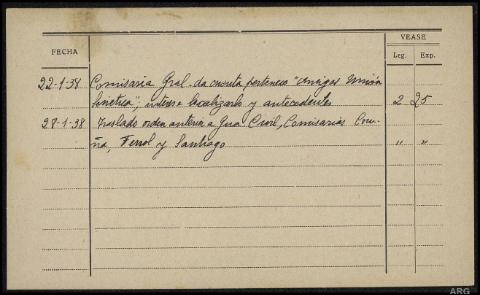 VEASE
FECHA
Leg. Exp.
22-1-38 Comisaria Gral. da cuenta pertenece "Amigos Unión
Sovietica", interesa localizarlo y antecedentes 2 25
28-1-38 Traslado orden anterior a Gua Civil, Comisarias Coru-
ña, Ferrol y Santiago " "
ARG